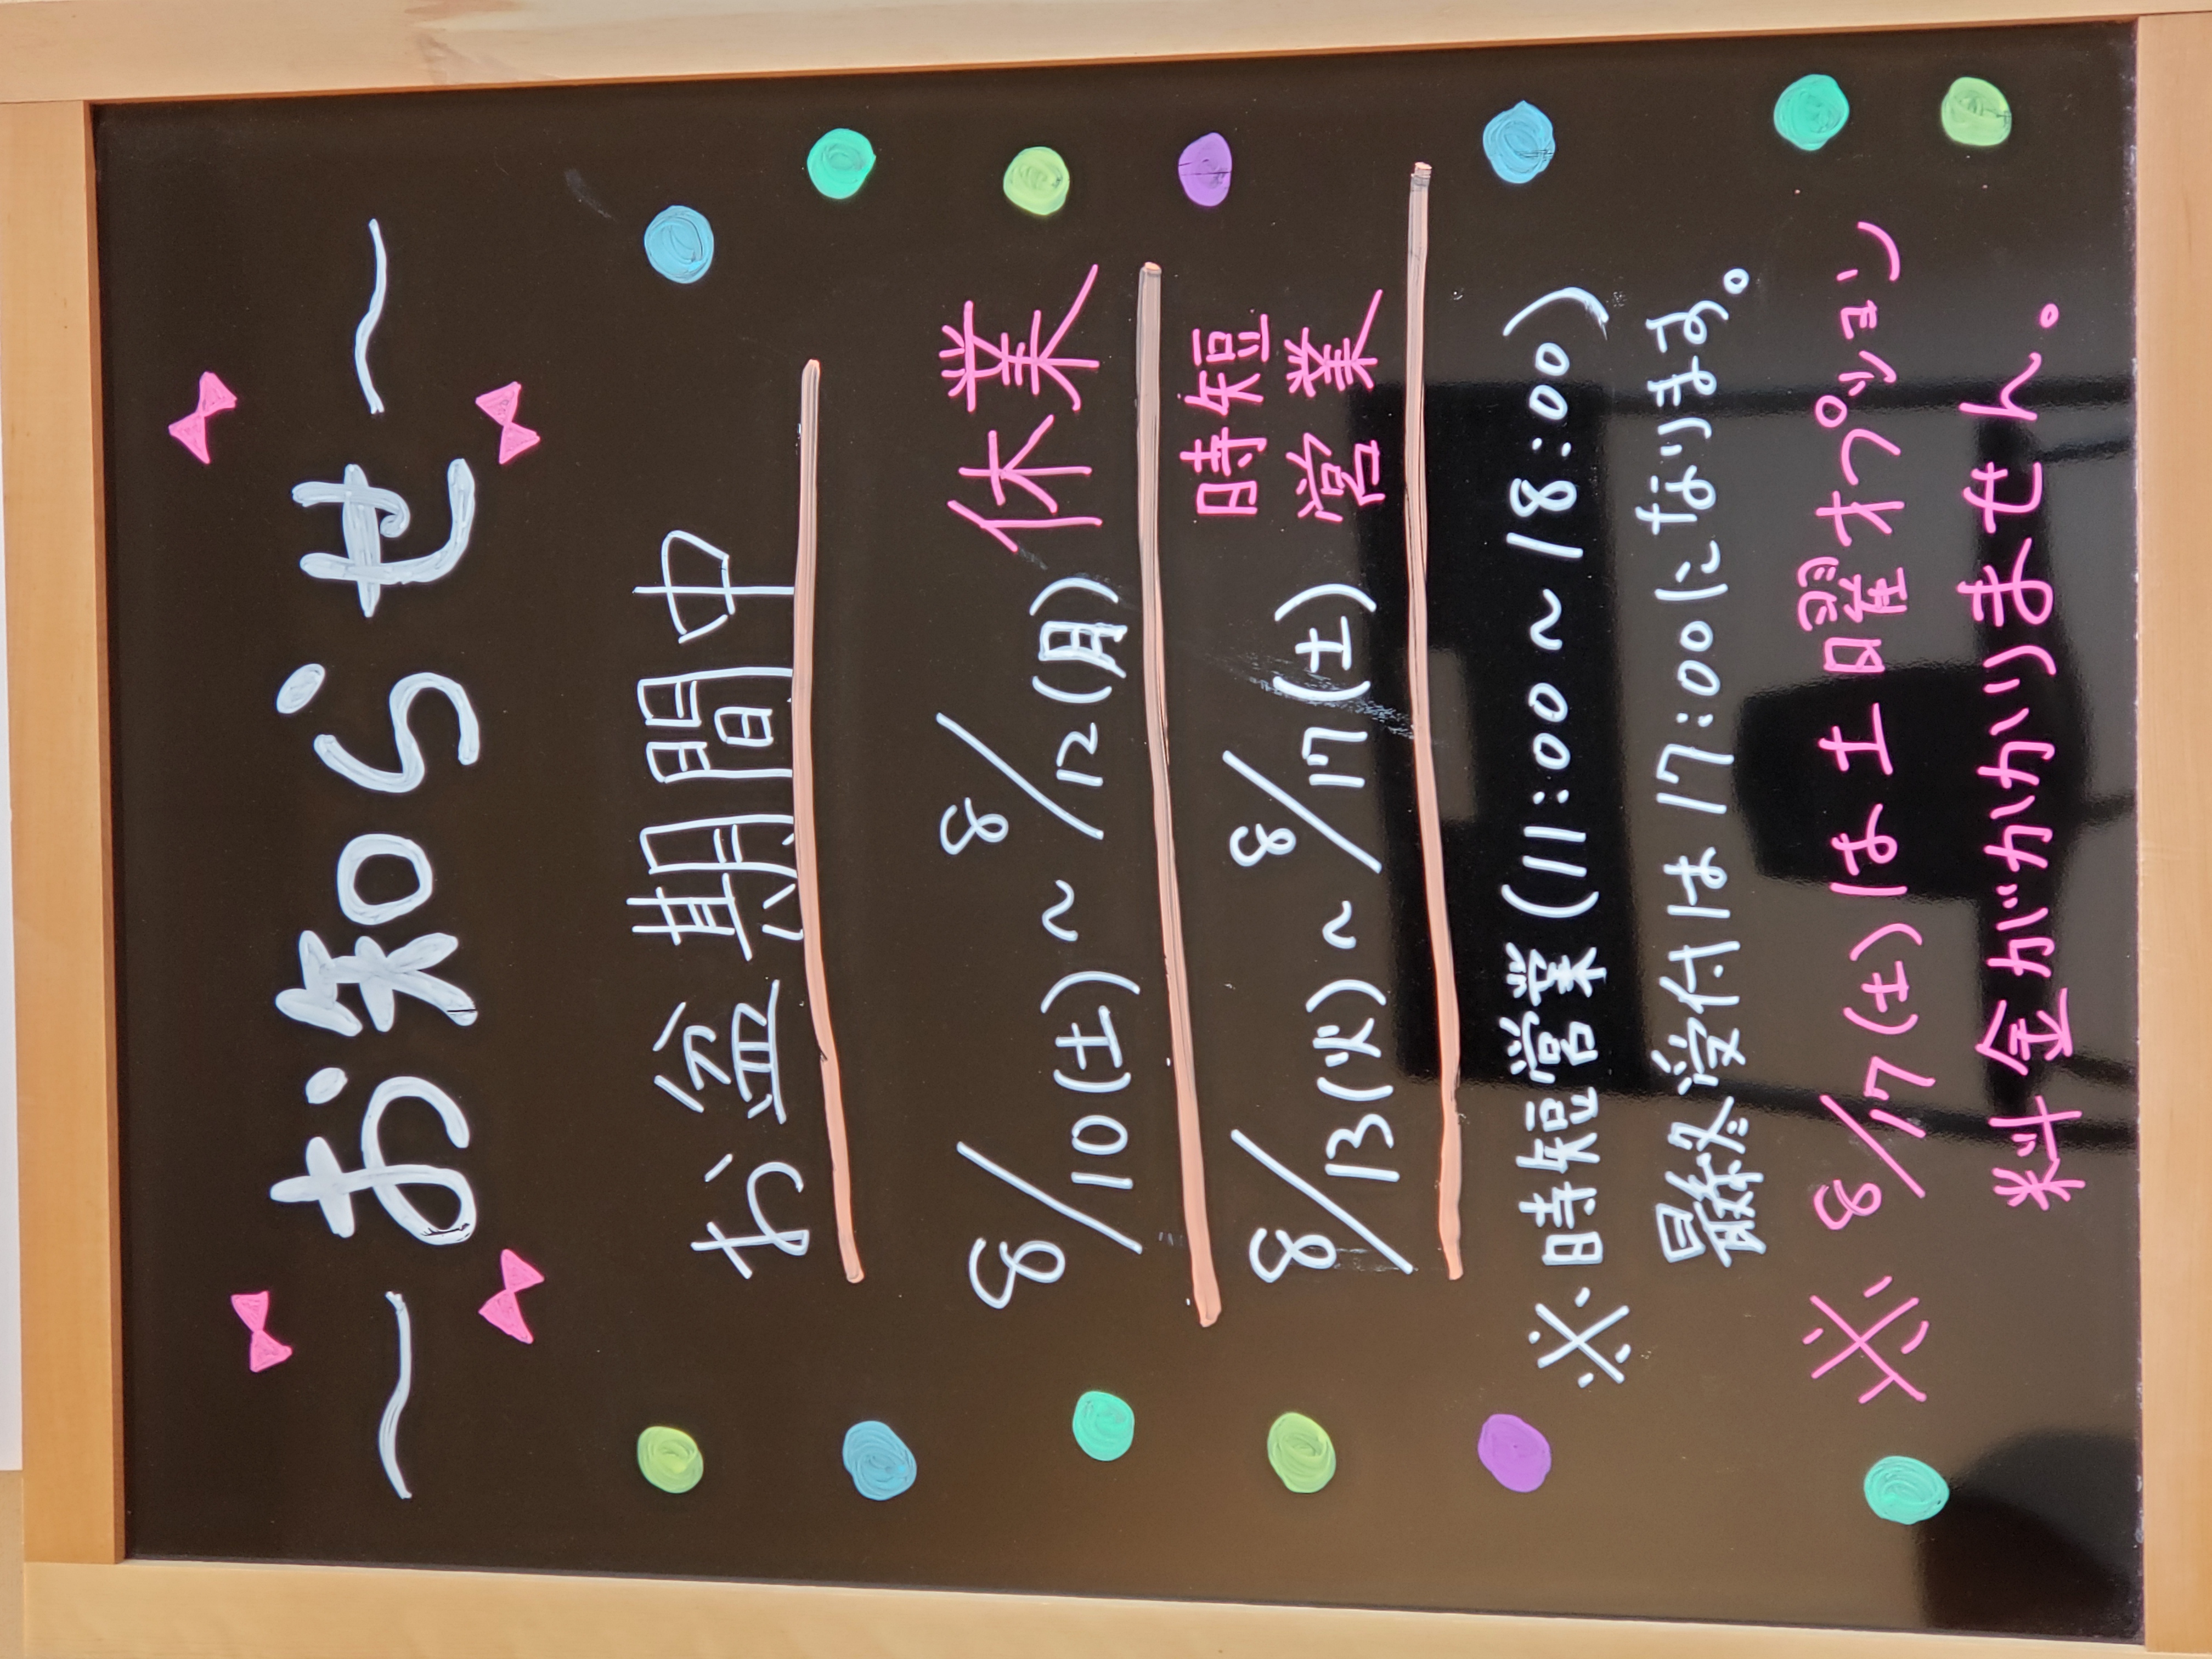 ～お知らせ～
お盆期間中
8/10(土)～8/12(月) 休業
8/13(火)～8/17(土) 時短営業
※時短営業(11:00～18:00)
最終受付は17:00になります。
※8/17(土)は土曜オプション
料金がかかりません。